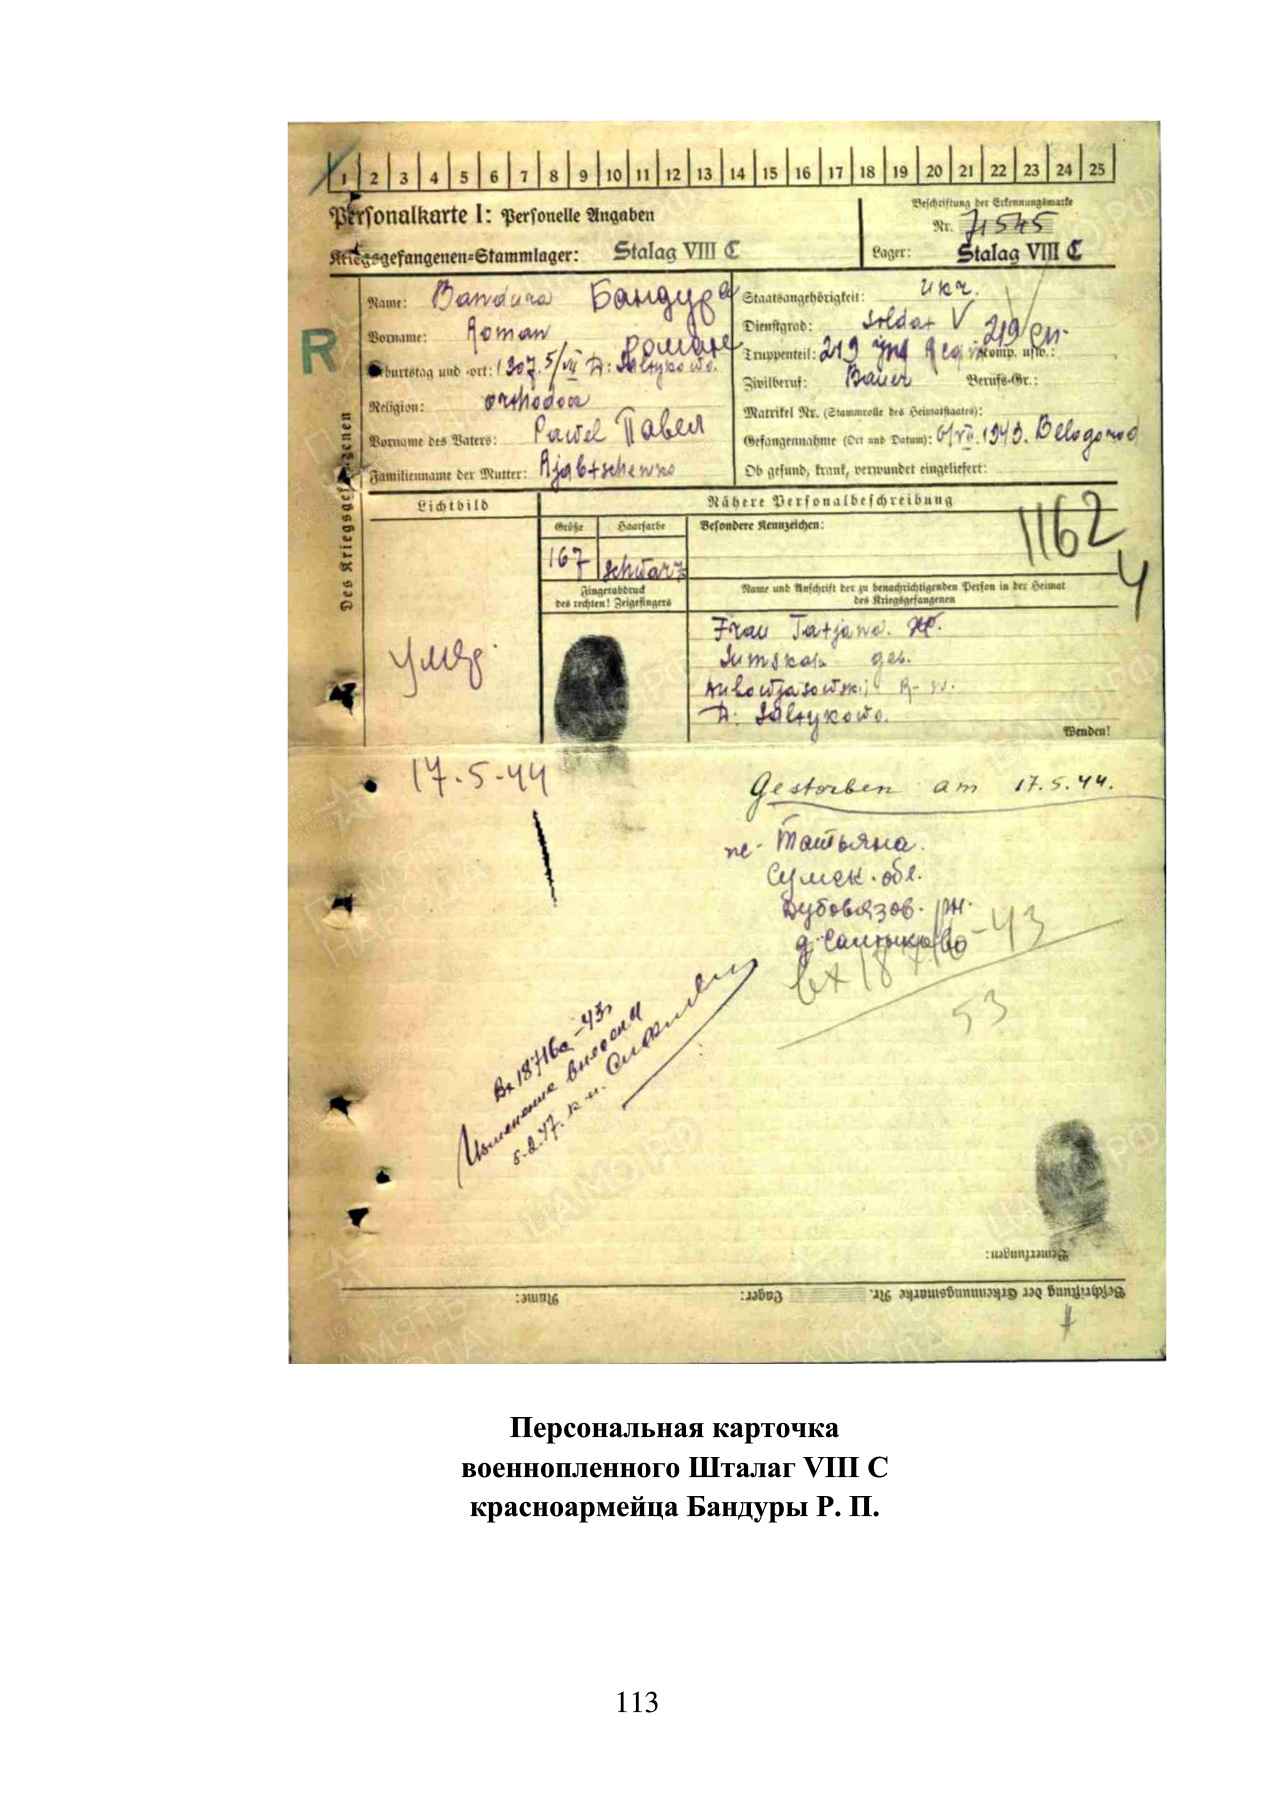 1 2 3 4 5 6 7 8 9 10 11 12 13 14 15 16 17 18 19 20 21 22 23 24 25
Personalkarte I: Personelle Angaben
Kriegsgefangenen-Stammlager: Stalag VIII C
Beschriftung der Erkennungsmarke
Nr. 71545
Lager: Stalag VIII C
Des Kriegsgefangenen
R
Name: Bandura Бандура
Vorname: Roman Роман
Geburtstag und -ort: 1907. 5/VII D: Saltykowo.
Religion: orthodox
Vorname des Vaters: Pawel Павел
Familienname der Mutter: Rjabtschenko
Staatsangehörigkeit: ukr.
Dienstgrad: Soldat V
Truppenteil: 219 Inf Reg. Komp. usw.: 219 сп.
Zivilberuf: Bauer Berufs-Gr.:
Matrikel Nr. (Stammrolle des Heimatstaates):
Gefangennahme (Ort und Datum): 6/VII. 1943. Belogorod
Ob gesund, krank, verwundet eingeliefert:
Lichtbild
Nähere Personalbeschreibung
Größe Haarfarbe Besondere Kennzeichen:
167 schwarz
1162
4
Fingerabdruck
des rechten! Zeigefingers
Name und Anschrift der zu benachrichtigenden Person in der Heimat
des Kriegsgefangenen
Frau Tatjana.
Sumskaja geb.
R-n.
D: Saltykowo.
Wenden!
умер
17.5.44
Gestorben am 17.5.44.
Татьяна.
Сумск. обл.
Дубовязов. рн.
д. Салтыково
вх 18716-43
53
Вх 18716а-43г
Изменение внесены
5.2.47.
Bemerkungen:
Beschriftung der Erkennungsmarke Nr. Lager: Name:
Персональная карточка
военнопленного Шталаг VIII С
красноармейца Бандуры Р. П.
113